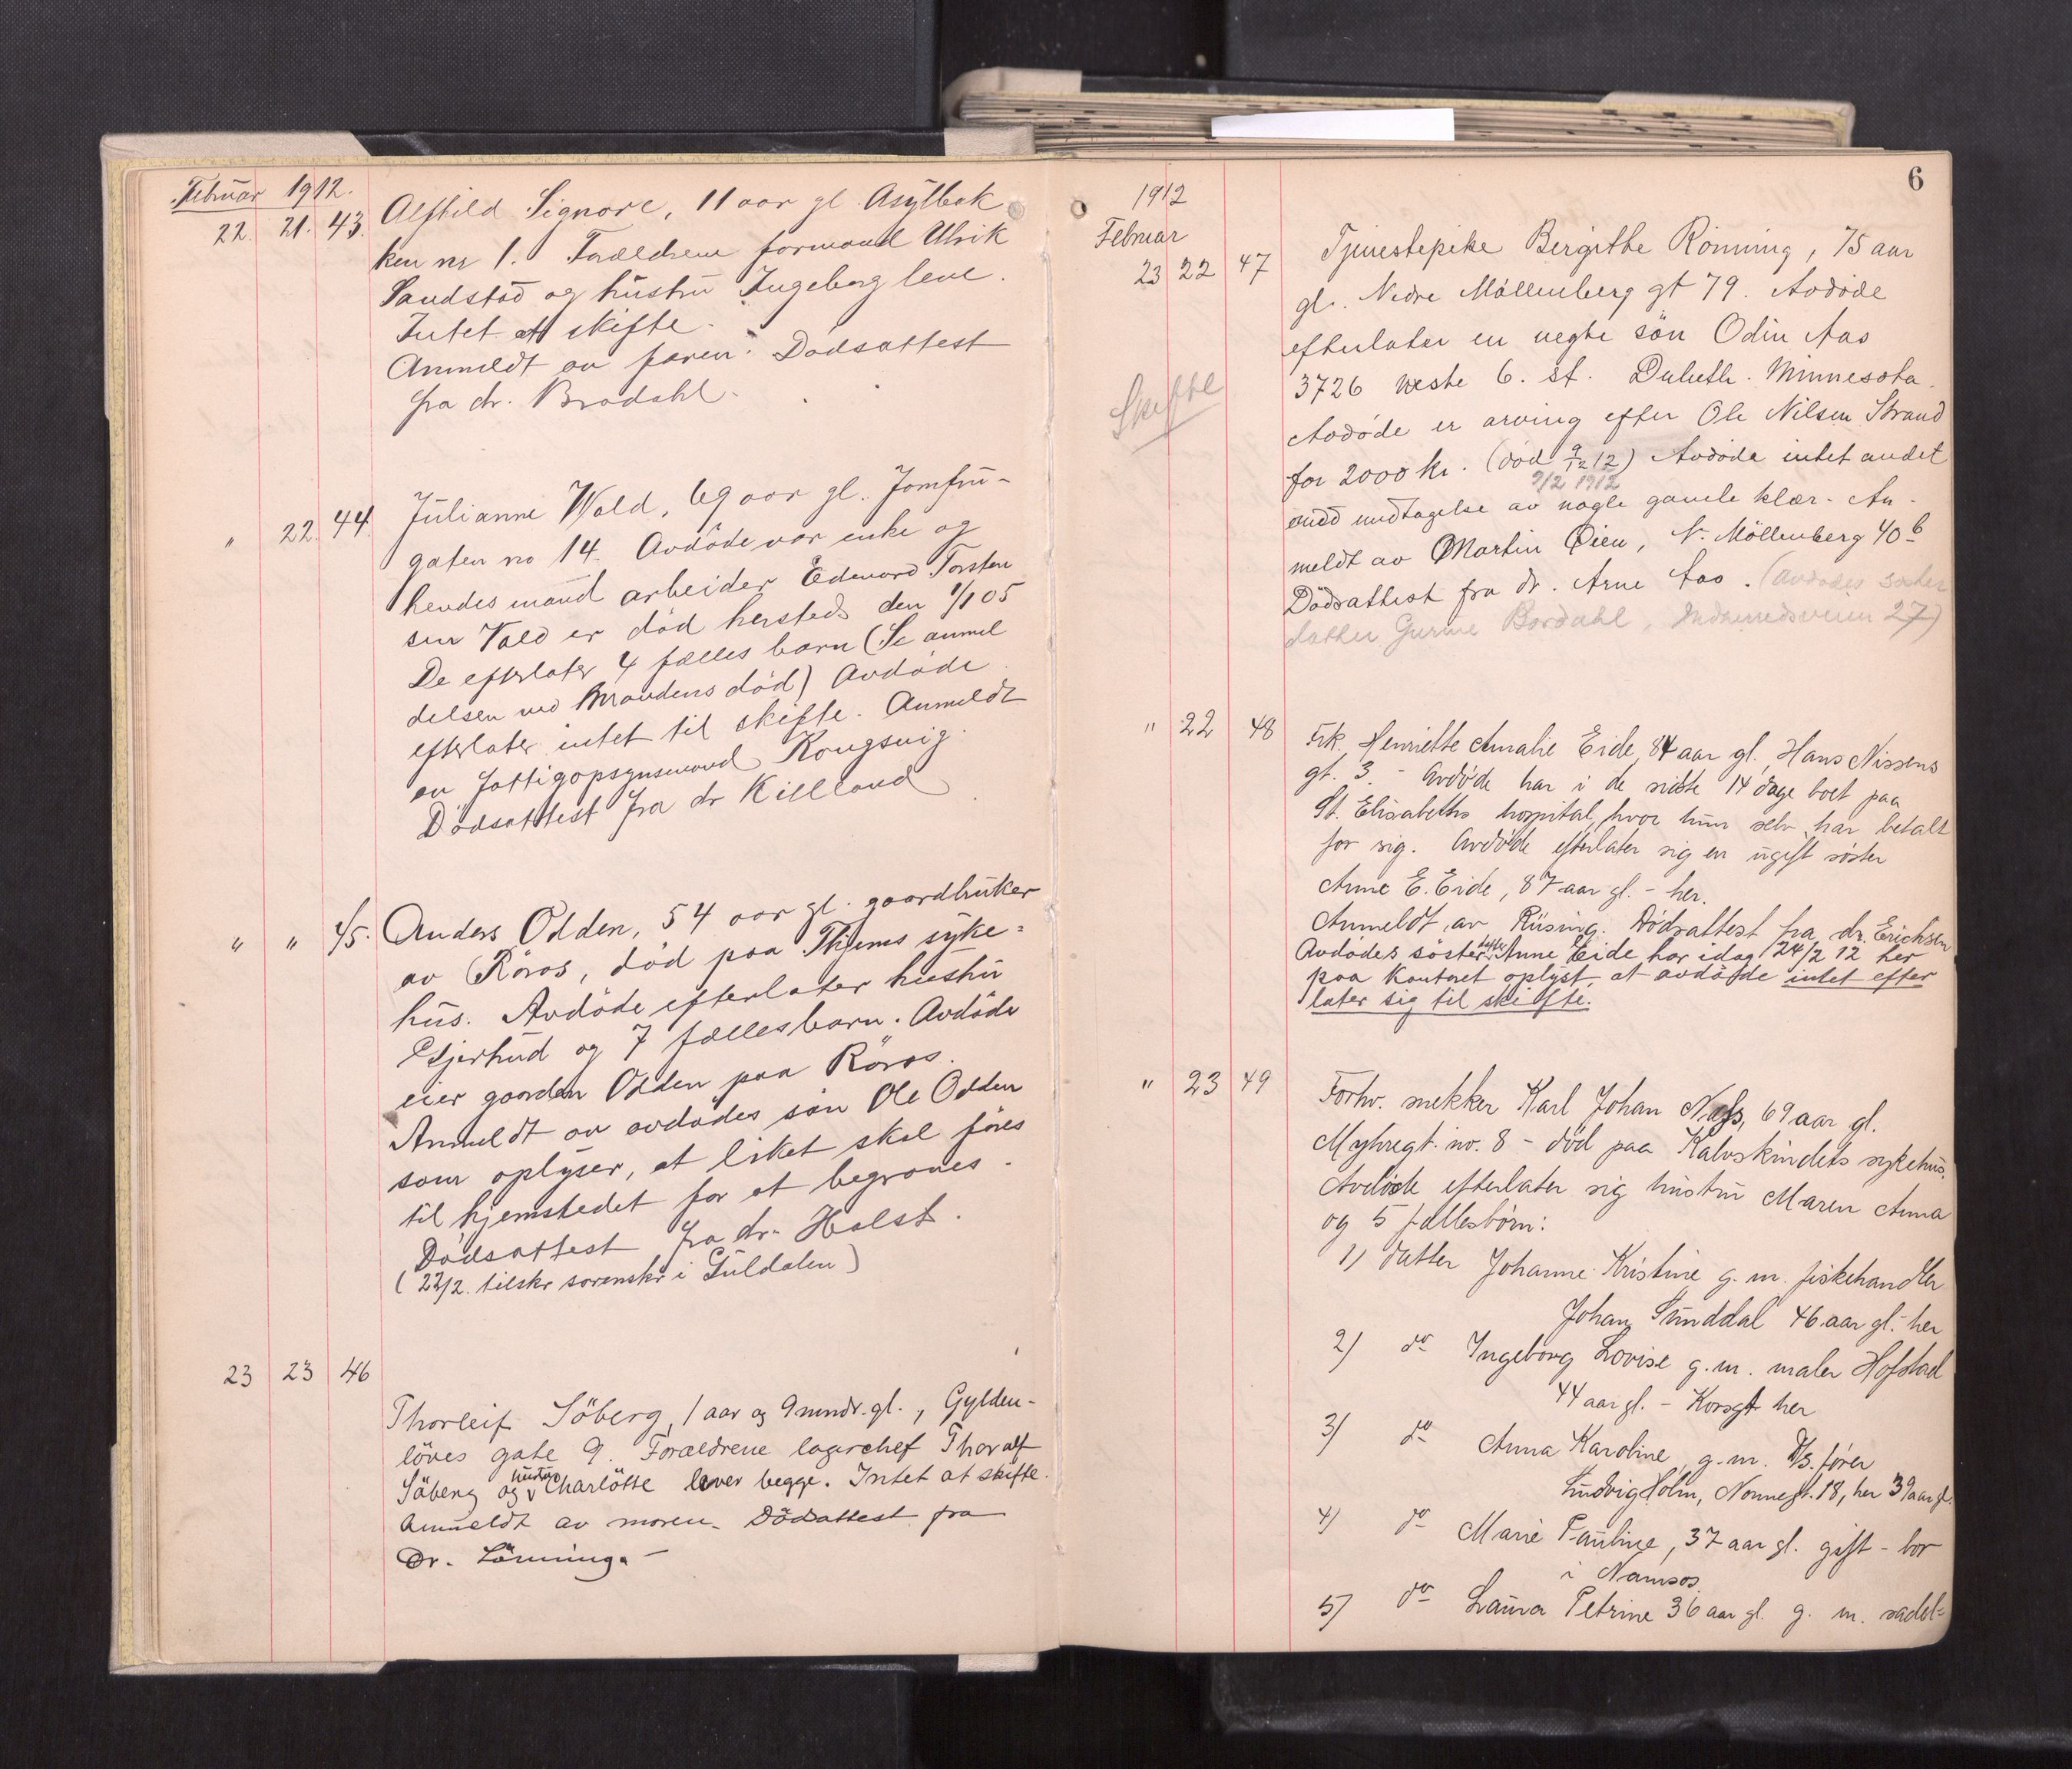 Februar 1912.
22. 21. 43. Alfhild Signore, 11 aar gl. Asylbak
ken nr 1. Forældrene formand Ulrik
Sandstad og hustru Ingeborg leve.
Intet at skifte.
Anmeldt av faren. Dødsattest
fra dr. Brodahl.
" 22. 44. Julianne Wold, 69 aar gl. Jomfru-
gaten no 14. Avdöde var enke og
hendes mand arbeider Edevard Torsten
sen Vold er död hersteds den 1/1 05
De efterlater 4 fælles barn (Se anmel
delsen ved Mandens död) Avdöde
efterlater intet til skifte. Anmeldt
av fattigopsynsmand Kongsvig.
Dödsattest fra dr Killland
" " 45. Anders Odden, 54 aar gl. gaardbruker
av Röros, död paa Thjems syke-
hus. Avdöde efterlater hustru
Gjertrud og 7 fællesbarn. Avdöde
eier gaarden Odden paa Röros.
Anmeldt av avdödes sön Ole Odden
som oplyser, at liket skal föres
til hjemstedet for at begraves.
Dödsattest fra dr. Holst.
(22/2. tilskr sorenskr i Guldalen)
23 23 46
Thorleif Söberg, 1 aar og 9 mndr. gl., Gylden-
löves gate 9. Forældrene lagerchef Thoralf
Söberg og hustru Charlotte lever begge. Intet at skifte.
Anmeldt av moren. Dödsattest fra
Dr. Lönning.
6
1912
Februar
23 22 47 Tjenestepike Bergithe Rönning, 75 aar
gl. Nedre Möllenberg gt 79. Avdöde
efterlater en uegte sön Odin Aas
3726 weste 6. st. Duluth. Minnesota.
Skifte
Avdöde er arving efter Ole Nilsen Strand
for 2000 kr. (död 9/12 12) Avdöde intet andet
9/2 1912
med undtagelse av nogle gamle klær. An-
meldt av Martin Öien, N. Möllenberg 40 b
Dödsattest fra dr. Arne Aas. (Avdödes söster
datter Gurine Bordahl, 27)
" 22 48 Frk. Henriette Amalie Eide, 84 aar gl., Hans Nissens
gt. 3. - Avdøde har i de sidste 14 dage boet paa
St. Elisabeths hospital, hvor hun selv har betalt
for sig. Avdøde efterlater sig en ugift søster
Anne E. Eide, 87 aar gl. - her.
Anmeldt av Rüsing. Dødsattest fra dr. Erichsen
Avdødes søster Anne Eide har idag 24/2 12 her
paa kontoret oplyst, at avdøde intet efter
later sig til skifte.
" 23 49 Forhv. snekker Karl Johan Næss, 69 aar gl.
Myhregt. no. 8 - død paa Kalvskindets sykehus.
Avdøde efterlater sig hustru Maren Anna
og 5 fællesbørn:
1) datter Johanne Kristine g. m. fiskehandler
Johan Sunddal 46 aar gl. - her
2) do Ingeborg Lovise g. m. maler Hofstad
44 aar gl. - Korsgt her
3) do Anna Karoline, g. m. D/S. fører
Ludvig Holm, Nonnegt. 18, her 39 aar gl.
4) do Marie Pauline, 37 aar gl. gift - bor
i Namsos.
5) do Laura Petrine 36 aar gl. g. m. sadel-